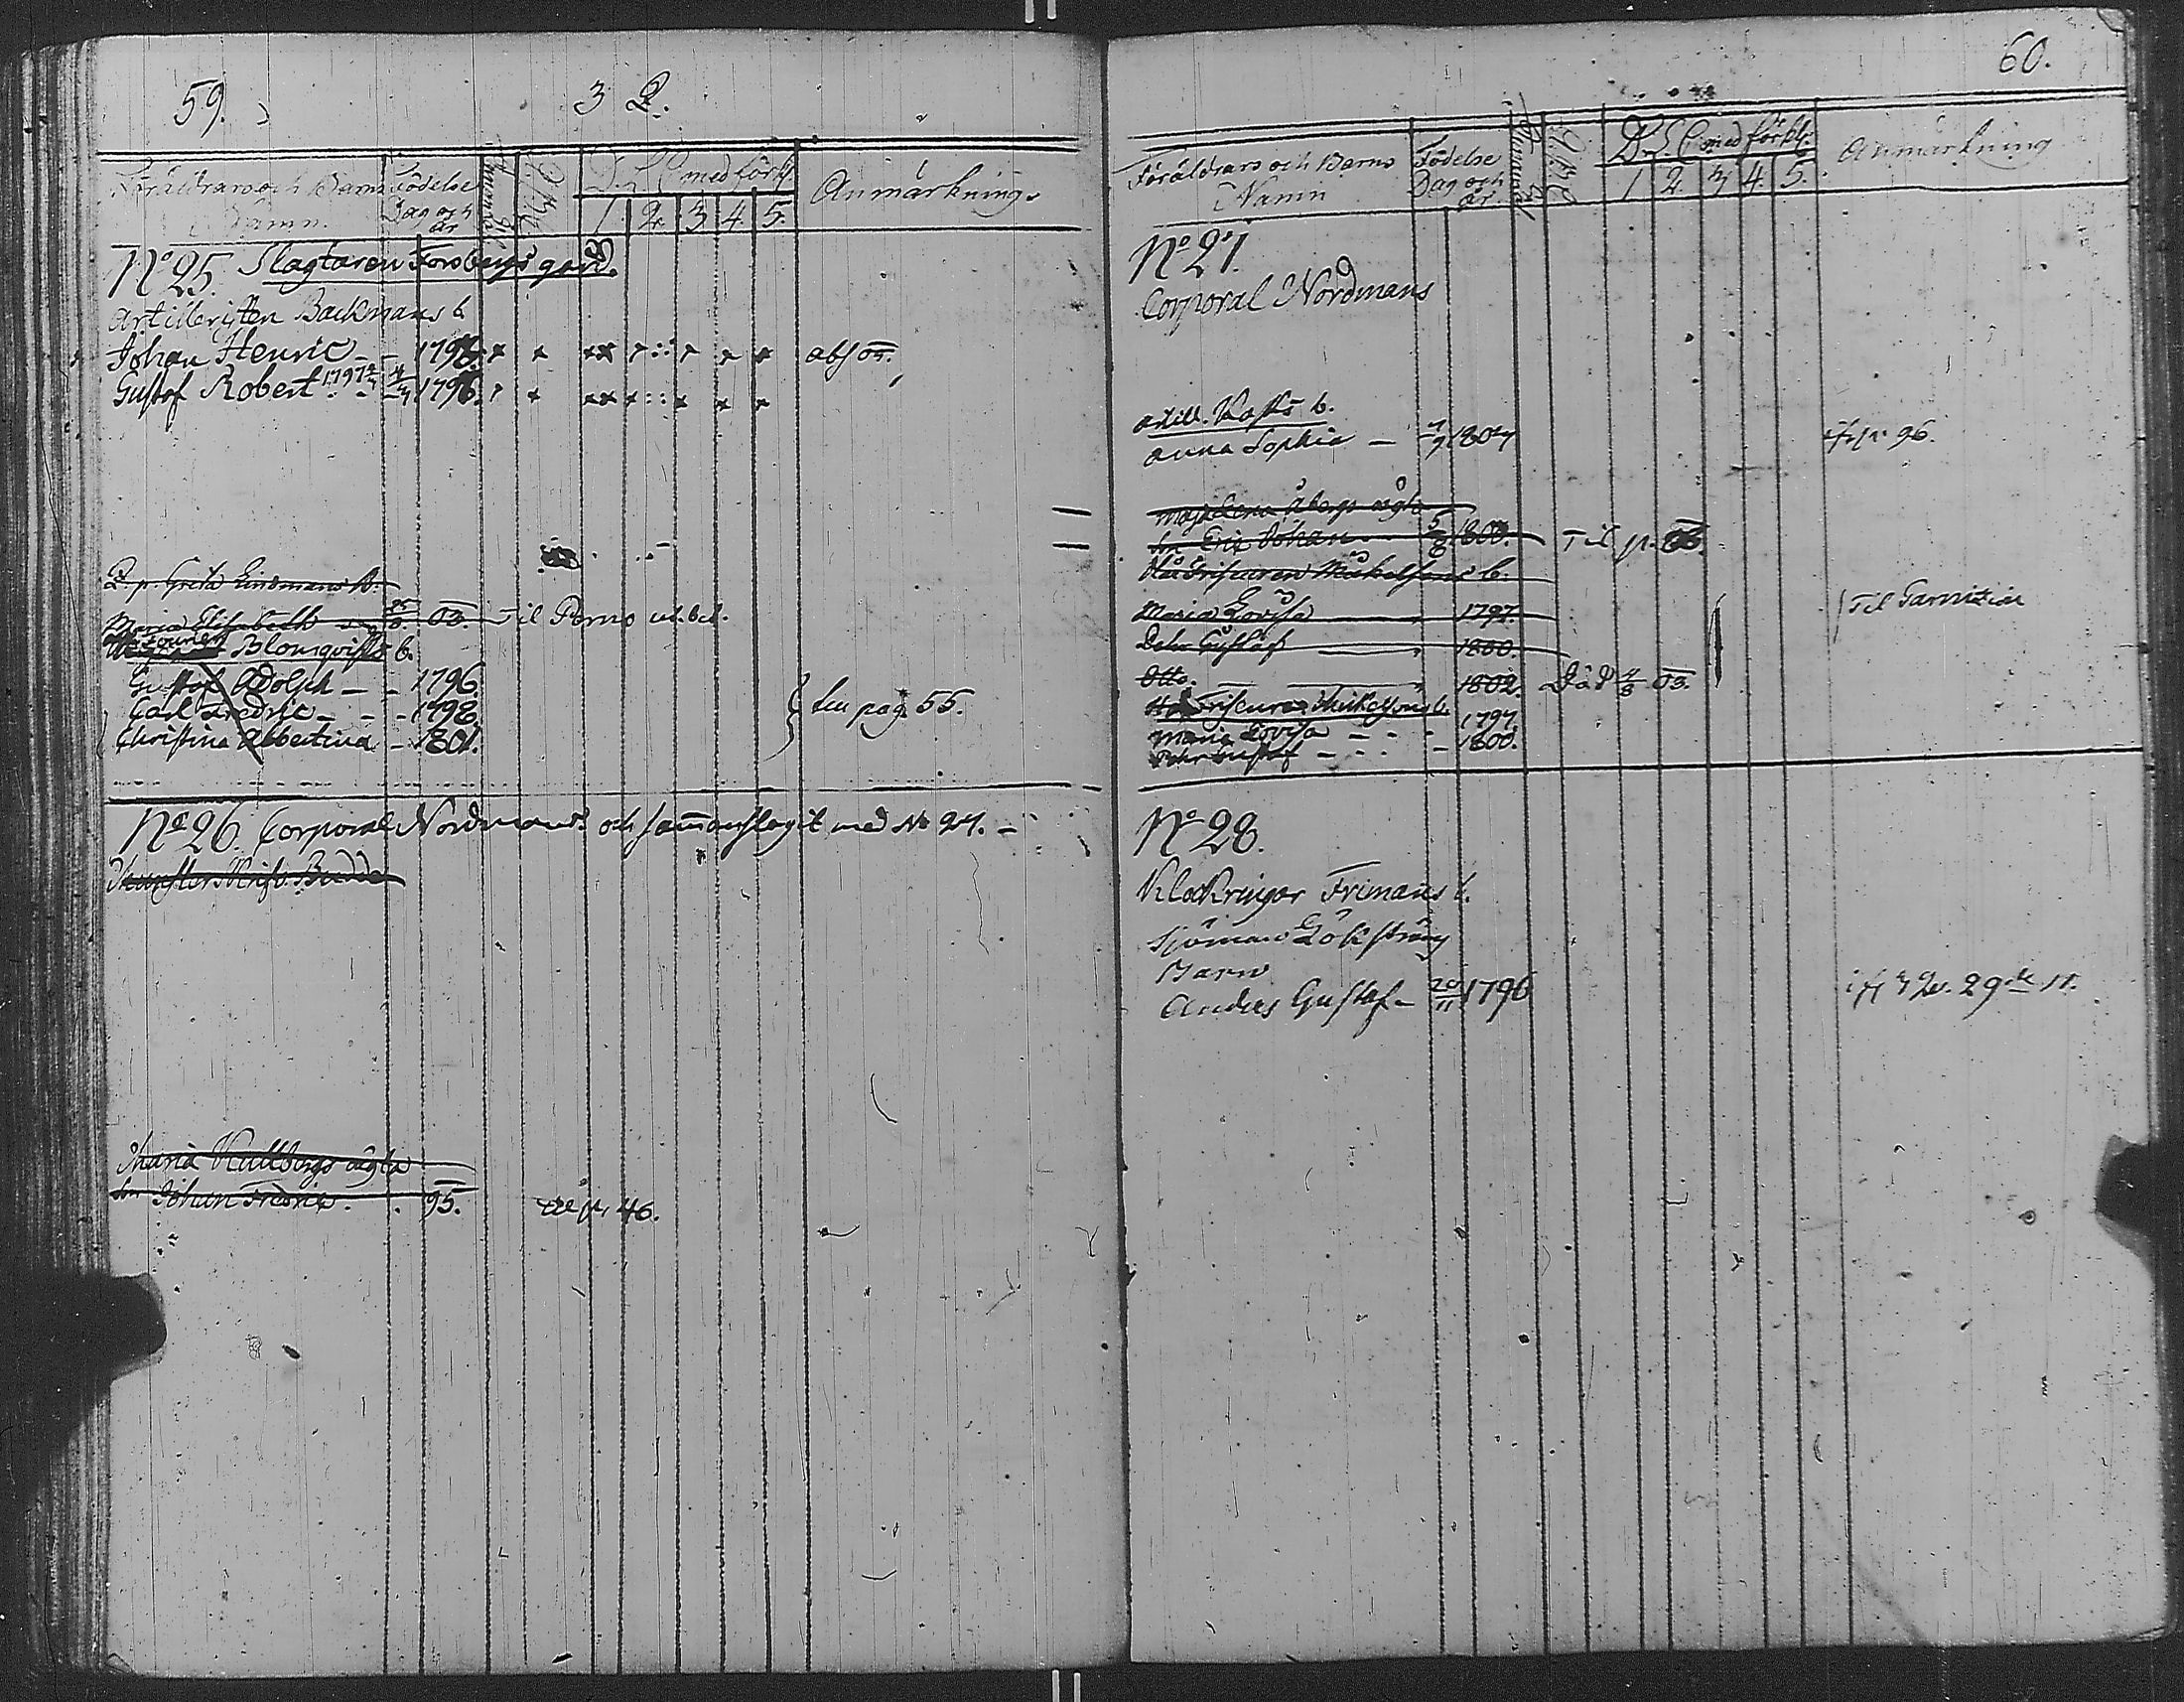 59.
3 Q.
Föräldrars och Barns
Namn.
Födelse
Dag och
år
D. L. C. med förkl.
1. 2. 3. 4. 5.
Anmärkning.
No 25. Slagtaren Forsbergs gård.
Artilleristen Backmans b.
Johan Henric - - 1793. abs 05.
Gustof Robert 1797 1796.
E. p. Greta Lindmans b.
Maria Elisabeth 03. Til Perno
Blomqvists b.
Gustaf Adolph - - 1796.
Carl Fredric - - 1798.
Christina Albertina - 1801.
pag. 55.
No 26. Corporal Nordmans och sammanslagit med No 27. -
Budde
Maria Kullbergs oägta
son Johan Fredric. . 95. til p. 46.
60.
Föräldrars och Barns
Namn
Födelse
Dag och
år.
D. L. C. med förkl.
1. 2. 3. 4. 5.
Anmärkning
No 27.
Corporal Nordmans
Artill. b.
Anna Sophia - 1804 96.
Majalena Åbergs oägta
son Eric Johan 5/8 1800. Til p.
Mickelsons b.
Maria Lovisa 1797. Til Garnizion
Pehr Gustaf 1800.
Otto. 1802. Död 4/8 03.
Mickelsons b.
Maria Lovisa - - - 1797.
Pehr Gustaf - - - 1800.
No 28.
Klockringar Frimans b.
Sjöman Lökström
Barn
Anders Gustaf - 20/11 1796